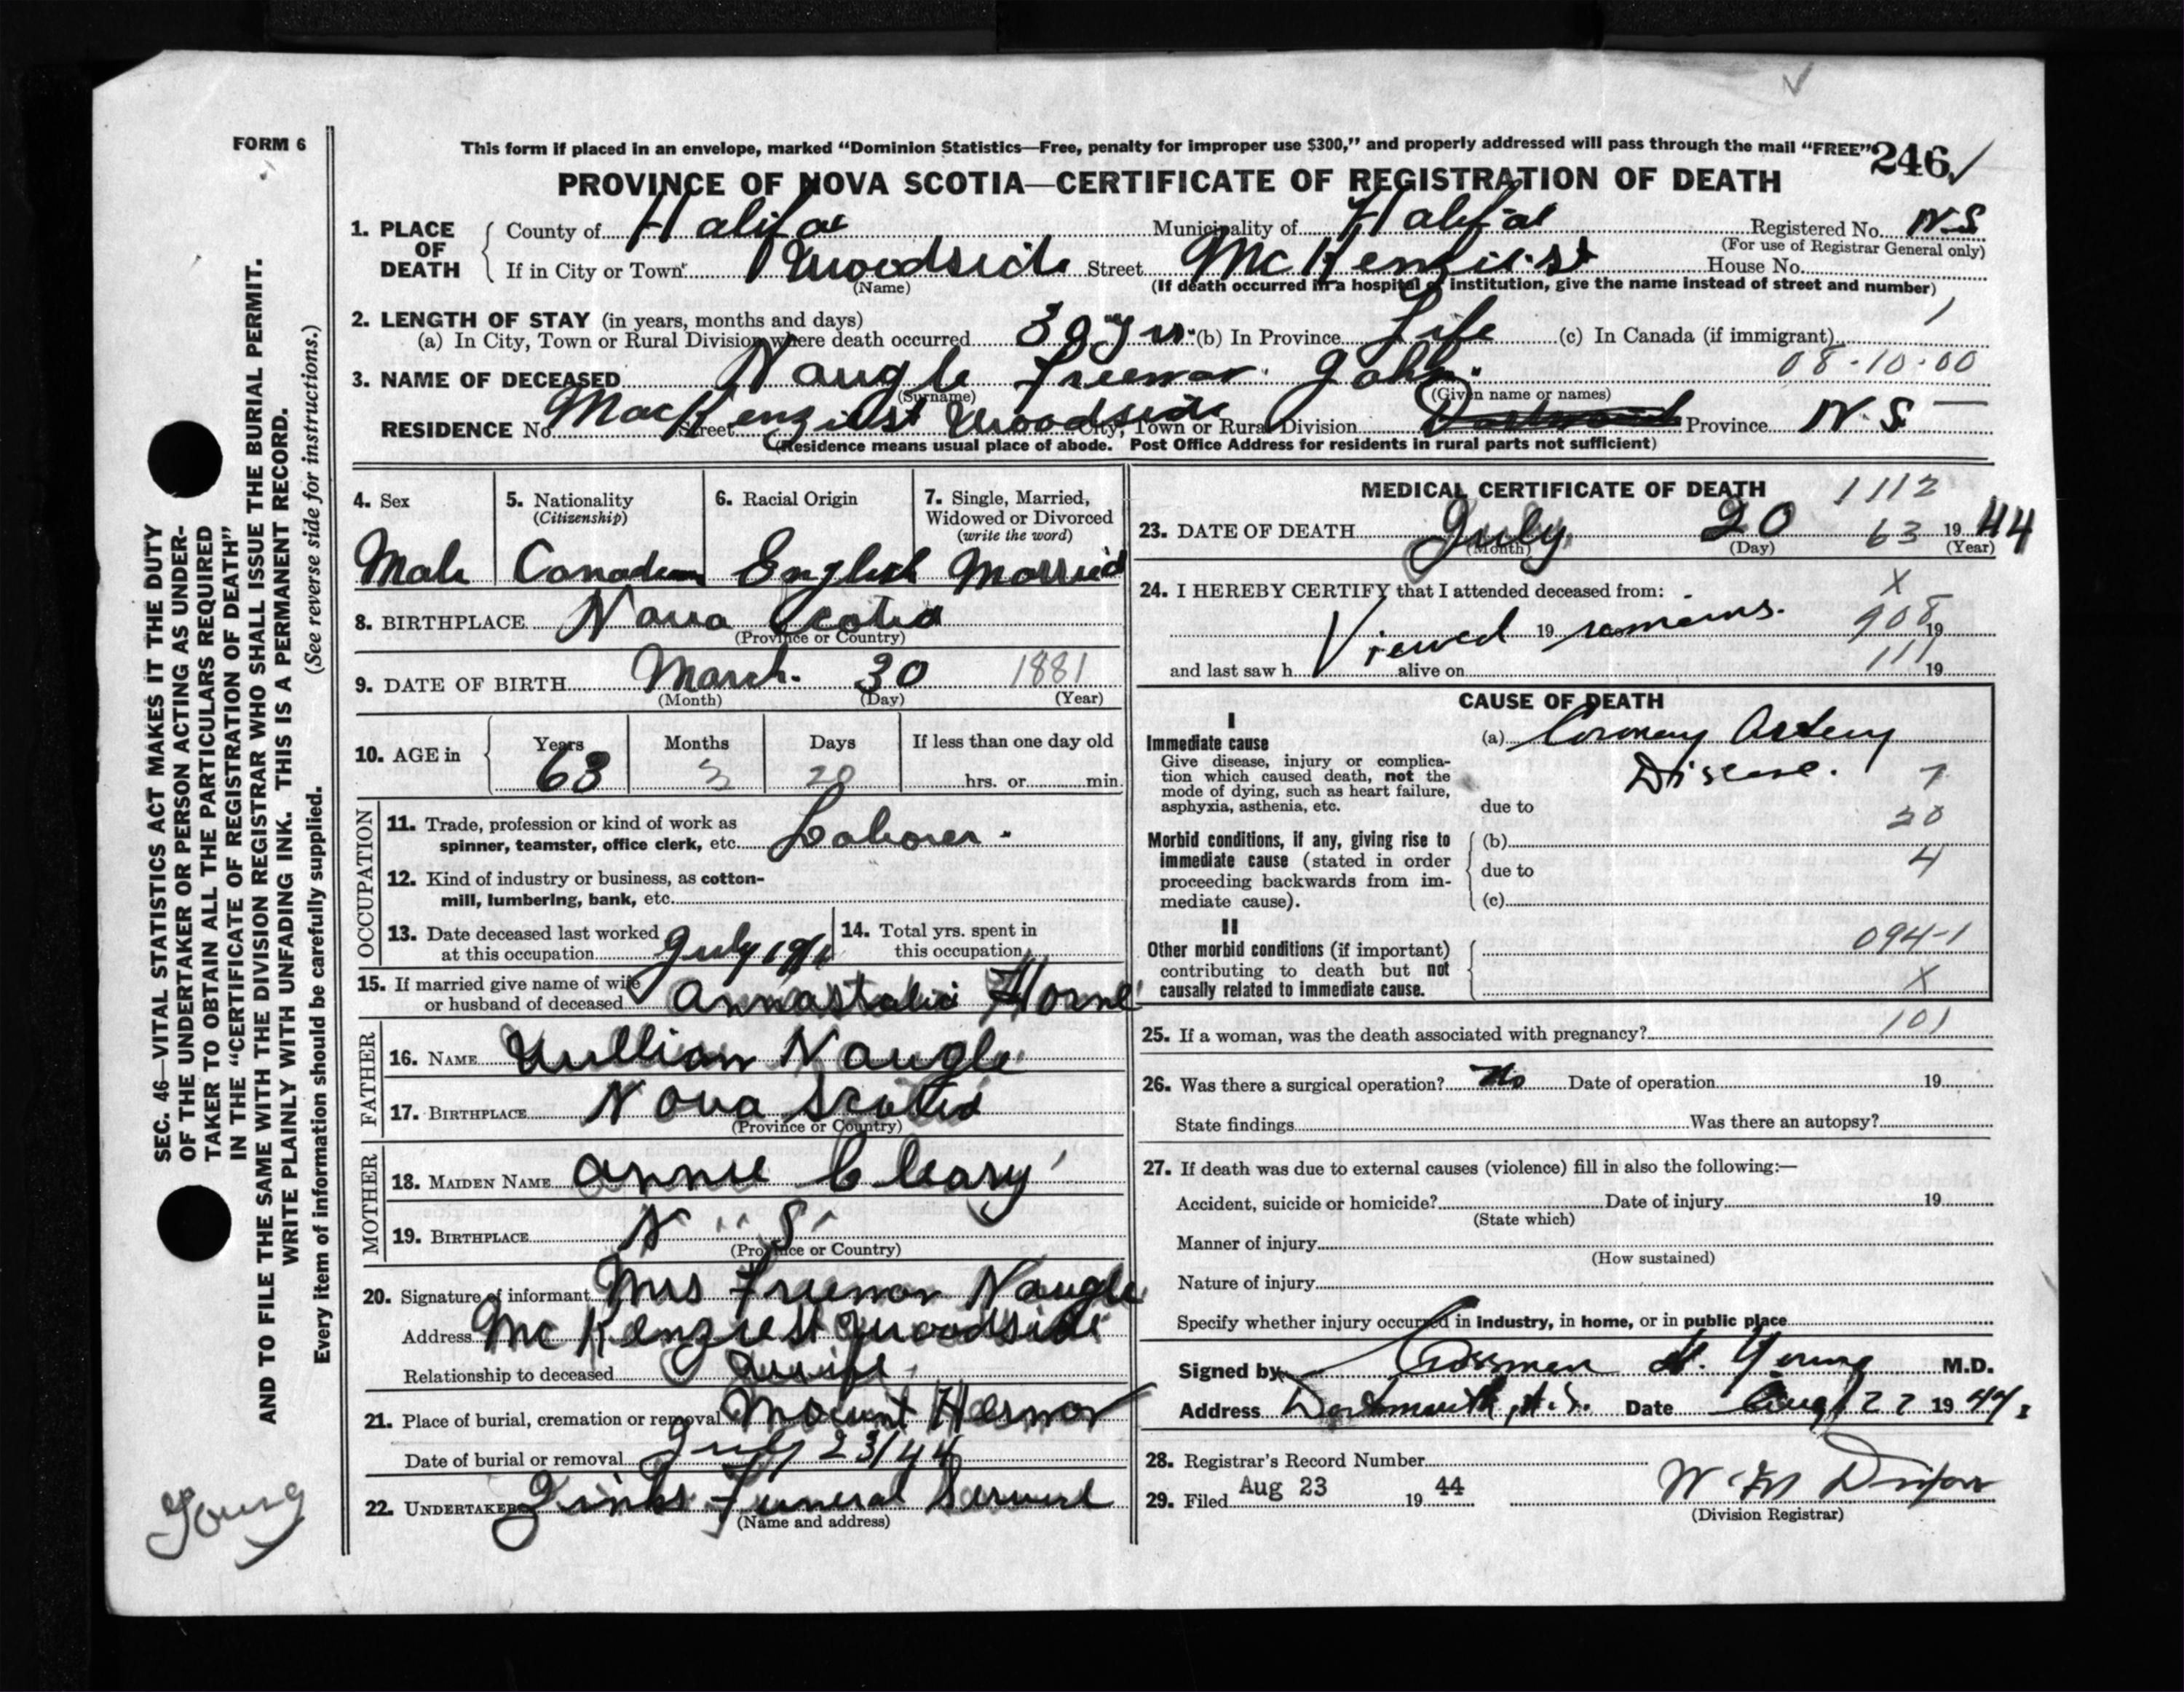 FORM 6
This form if placed in an envelope, marked “Dominion Statistics—Free, penalty for improper use $300,” and properly addressed will pass through the mail “FREE”
246
PROVINCE OF NOVA SCOTIA—CERTIFICATE OF REGISTRATION OF DEATH
1. PLACE OF DEATH County of Halifax Municipality of Halifax Registered No. N.S
(For use of Registrar General only)
If in City or Town Woodside Street McKenzie st House No.
(Name) (If death occurred in a hospital or institution, give the name instead of street and number)
2. LENGTH OF STAY (in years, months and days)
(a) In City, Town or Rural Division where death occurred 30 yrs (b) In Province Life (c) In Canada (if immigrant)
3. NAME OF DECEASED Naugle Freeman John 08-10-00
(Surname) (Given name or names)
RESIDENCE No. MacKenzie st Street Woodside City, Town or Rural Division Province N.S.
(Residence means usual place of abode. Post Office Address for residents in rural parts not sufficient)
4. Sex
Male
5. Nationality
(Citizenship)
Canadian
6. Racial Origin
English
7. Single, Married,
Widowed or Divorced
(write the word)
Married
8. BIRTHPLACE Nova Scotia
(Province or Country)
9. DATE OF BIRTH March 30 1881
(Month) (Day) (Year)
10. AGE in Years Months Days If less than one day old
63 3 20 hrs. or min.
OCCUPATION
11. Trade, profession or kind of work as
spinner, teamster, office clerk, etc. Laborer
12. Kind of industry or business, as cotton-
mill, lumbering, bank, etc.
13. Date deceased last worked
at this occupation July
14. Total yrs. spent in
this occupation
15. If married give name of wife
or husband of deceased Annastalia Horne
FATHER
16. NAME William Naugle
17. BIRTHPLACE Nova Scotia
(Province or Country)
MOTHER
18. MAIDEN NAME Annie Cleary
19. BIRTHPLACE N. S.
(Province or Country)
20. Signature of informant Mrs Freeman Naugle
Address McKenzie st Woodside
Relationship to deceased wife
21. Place of burial, cremation or removal Mount Hermon
Date of burial or removal July 23/44
22. UNDERTAKER Zinks Funeral Service
(Name and address)
MEDICAL CERTIFICATE OF DEATH 1112
23. DATE OF DEATH July 20 63 19 44
(Month) (Day) (Year)
24. I HEREBY CERTIFY that I attended deceased from: X
Viewed 19 remains. 908 19
and last saw h alive on 111 19
CAUSE OF DEATH
I
Immediate cause
Give disease, injury or complica-
tion which caused death, not the
mode of dying, such as heart failure,
asphyxia, asthenia, etc.
(a) Coronary Artery
Disease. 7
due to
20
Morbid conditions, if any, giving rise to
immediate cause (stated in order
proceeding backwards from im-
mediate cause).
(b)
due to 4
(c)
II
Other morbid conditions (if important)
contributing to death but not
causally related to immediate cause.
094-1
X
25. If a woman, was the death associated with pregnancy? 101
26. Was there a surgical operation? No Date of operation 19
State findings Was there an autopsy?
27. If death was due to external causes (violence) fill in also the following:—
Accident, suicide or homicide? Date of injury 19
(State which)
Manner of injury
(How sustained)
Nature of injury
Specify whether injury occurred in industry, in home, or in public place
Signed by H. Young M.D.
Address Dartmouth, N.S. Date Aug 22 1944.
28. Registrar's Record Number
29. Filed Aug 23 19 44
(Division Registrar)
SEC. 46—VITAL STATISTICS ACT MAKES IT THE DUTY
OF THE UNDERTAKER OR PERSON ACTING AS UNDER-
TAKER TO OBTAIN ALL THE PARTICULARS REQUIRED
IN THE “CERTIFICATE OF REGISTRATION OF DEATH”
AND TO FILE THE SAME WITH THE DIVISION REGISTRAR WHO SHALL ISSUE THE BURIAL PERMIT.
WRITE PLAINLY WITH UNFADING INK. THIS IS A PERMANENT RECORD.
Every item of information should be carefully supplied. (See reverse side for instructions.)
Young